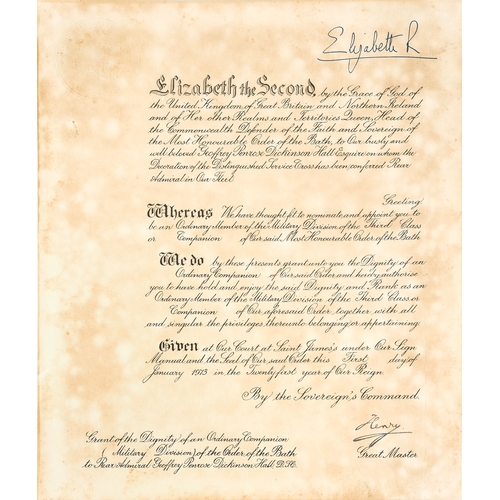 Elizabeth R
Elizabeth the Second, by the Grace of God of
the United Kingdom of Great Britain and Northern Ireland
and of Her other Realms and Territories Queen, Head of
the Commonwealth Defender of the Faith and Sovereign of
the Most Honourable Order of the Bath, to Our trusty and
well beloved Geoffrey Penrose Dickinson Hall Esquire on whom the
Decoration of the Distinguished Service Cross has been conferred Rear
Admiral in Our Fleet
Greeting
Whereas We have thought fit to nominate and appoint you to
be an Ordinary Member of the Military Division of the Third Class
or Companion of Our said Most Honourable Order of the Bath
We do by these presents grant unto you the Dignity of an
Ordinary Companion of Our said Order and hereby authorise
you to have hold and enjoy the said Dignity and Rank as an
Ordinary Member of the Military Division of the Third Class or
Companion of Our aforesaid Order, together with all
and singular the privileges thereunto belonging or appertaining
Given at Our Court at Saint James's under Our Sign
Manual and the Seal of Our said Order this First day of
January 1973 in the Twenty first year of Our Reign.
By the Sovereign's Command.
Henry
Great Master
Grant of the Dignity of an Ordinary Companion
(Military Division) of the Order of the Bath
to Rear Admiral Geoffrey Penrose Dickinson Hall D.S.C.